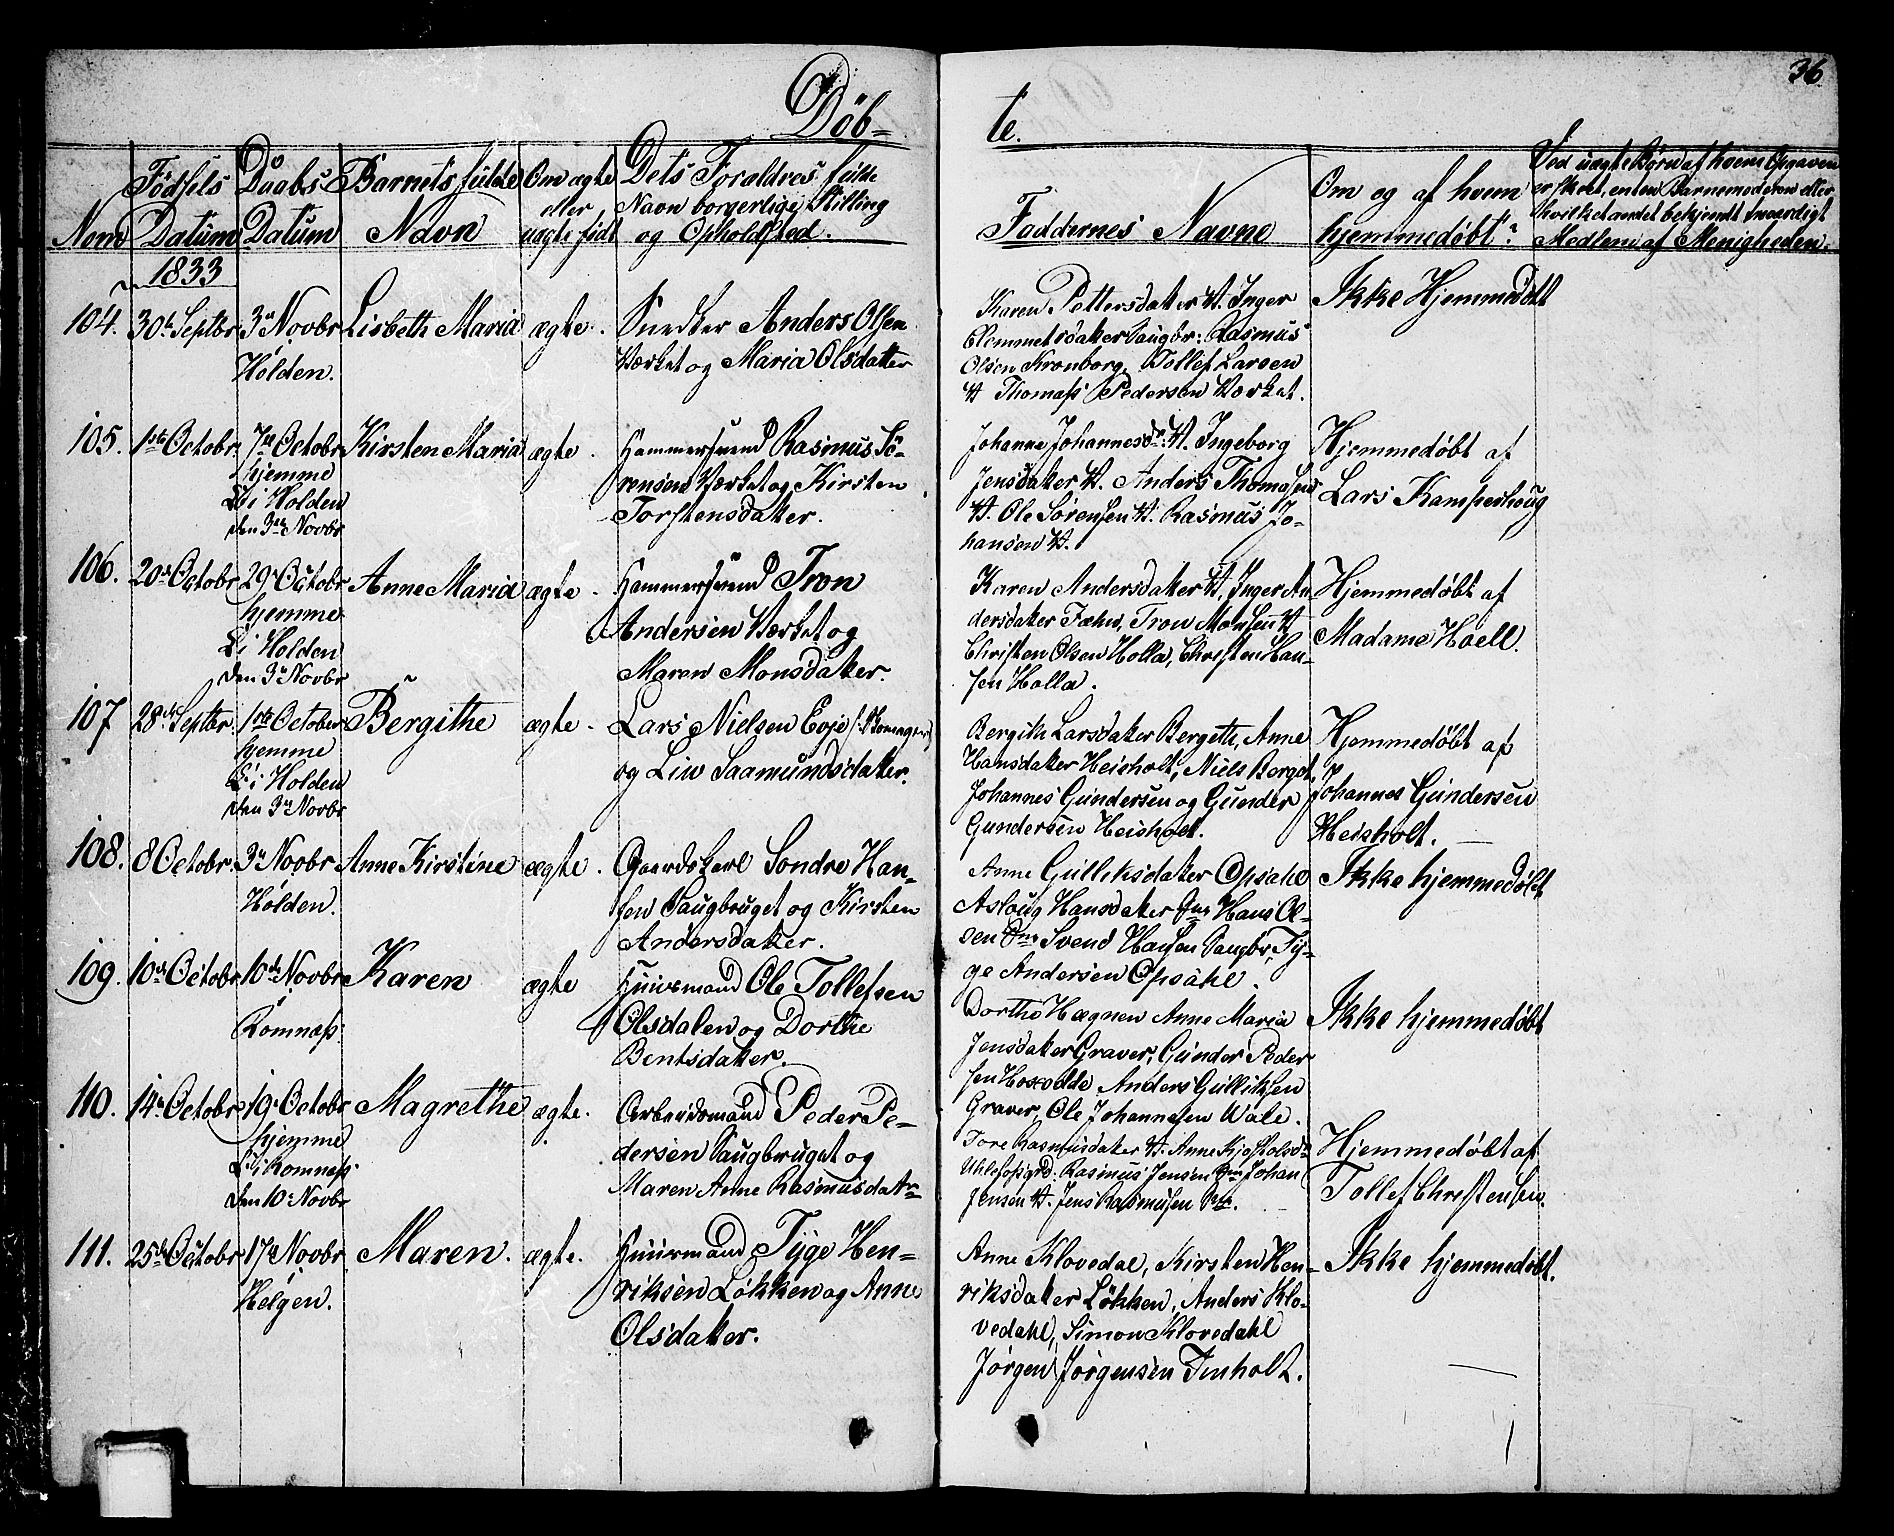 Döb-
te.
36
Nom
Födsels Datum
Daabs Datum
Barnets fulde Navn
Om ægte eller uægte födt
Dets Foraldres fulde
Navn borgerlige Stilling
og Opholdsted.
Faddernes Navne
Om og af hvem
hjemmedöbt?
Ved uægte Börn af hvem Opgaven
er skeet, enten Barnemoderen eller
hvilket andet bekjendt troværdigt
Medlem af Menigheden.
1833
104. 30te Septbr 3de Novbr Holden. Lisbeth Maria ægte.
Snedker Anders Olsen
Værket og Maria Olsdatter
Karen Pettersdatter V. Inger
Clemmetsdatter Saugbr: Rasmus
Olsen Kronborg, Tollef Larsen
V. Thomass Pedersen Værket.
Ikke Hjemmedöbt
105. 1ste Octobr. 7de Octobr
hjemme
L. i Holden
den 3de Novbr
Kirsten Maria ægte.
Hammersvend Rasmus Sö-
rensen Værket og Kirsten
Torstensdatter.
Johanne Johannesdr: V. Ingeborg
Jensdatter V. Anders Thomasen
V. Ole Sörensen V. Rasmus Jo-
hansen V.
Hjemmedöbt af
Lars Kamperhoug
106. 20de Octobr 29. Octobr
hjemme
L. i Holden
den 3de Novbr
Anne Maria ægte.
Hammersvend Tron
Andersen Værket og
Maren Monsdatter.
Karen Andersdatter V. Inger An
dersdatter Fæhn, Tron Monsen V
Christen Olsen Holla, Christen Han-
sen Holla.
Hjemmedöbt af
Madame Hoell.
107 28de Septbr. 1ste October
hjemme
L. i Holden
den 3de Novbr
Bergithe ægte.
Lars Nielsen Evje
og Liw Saamundsdatter.
Bergith Larsdatter Bergeth, Anne
Hansdatter Heisholt, Niels Berget,
Johannes Gundersen og Gunder
Gundersen Heisholt.
Hjemmedöbt af
Johannes Gundersen
Heisholt.
108. 8 Octobr. 3de Novbr
Holden.
Anne Kirstine ægte.
Gaardskarl Sondre Han-
sen Saugbruget og Kirsten
Andersdatter.
Anne Gulliksdatter Opsahl
Aslaug Hansdatter Hans Ol-
sen Svend Hansen Saugbr, Ty-
ge Andersen Opsahl.
Ikke hjemmedöbt
109. 10de Octobr 10de Novbr
Romnæss.
Karen ægte
Huusmand Ole Tollefsen
Olsdalen og Dorthe
Bentsdatter.
Dorthe Hægnen Anne Maria
Jensdatter Graver, Gunder Peder
sen Anders Gulliksen
Graver, Ole Johannesen Wale.
Ikke hjemmedöbt
110. 14de Octobr 19. Octobr
hjemme
L. i Romnæss
den 10. Novbr
Magrethe ægte.
Arbeidsmand Peder Pe-
dersen Saugbruget og
Maren Anne Rasmusdatr
Tore Rasmusdatter V. Anne
Rasmus Jensen Johan
Jensen V. Jens Rasmusen
Hjemmedöbt af
Tollef Christensen.
111. 25de Octobr 17de Novbr
Helgen.
Maren. ægte.
Huusmand Tyge Hen-
riksen Lökken og Anne
Olsdatter.
Anne Klovedal, Kirsten Hen-
riksdatter Lökken, Anders Klo-
vedahl, Simon Klovedahl
Jörgen Jörgensen Tinholt.
Ikke hjemmedöbt.